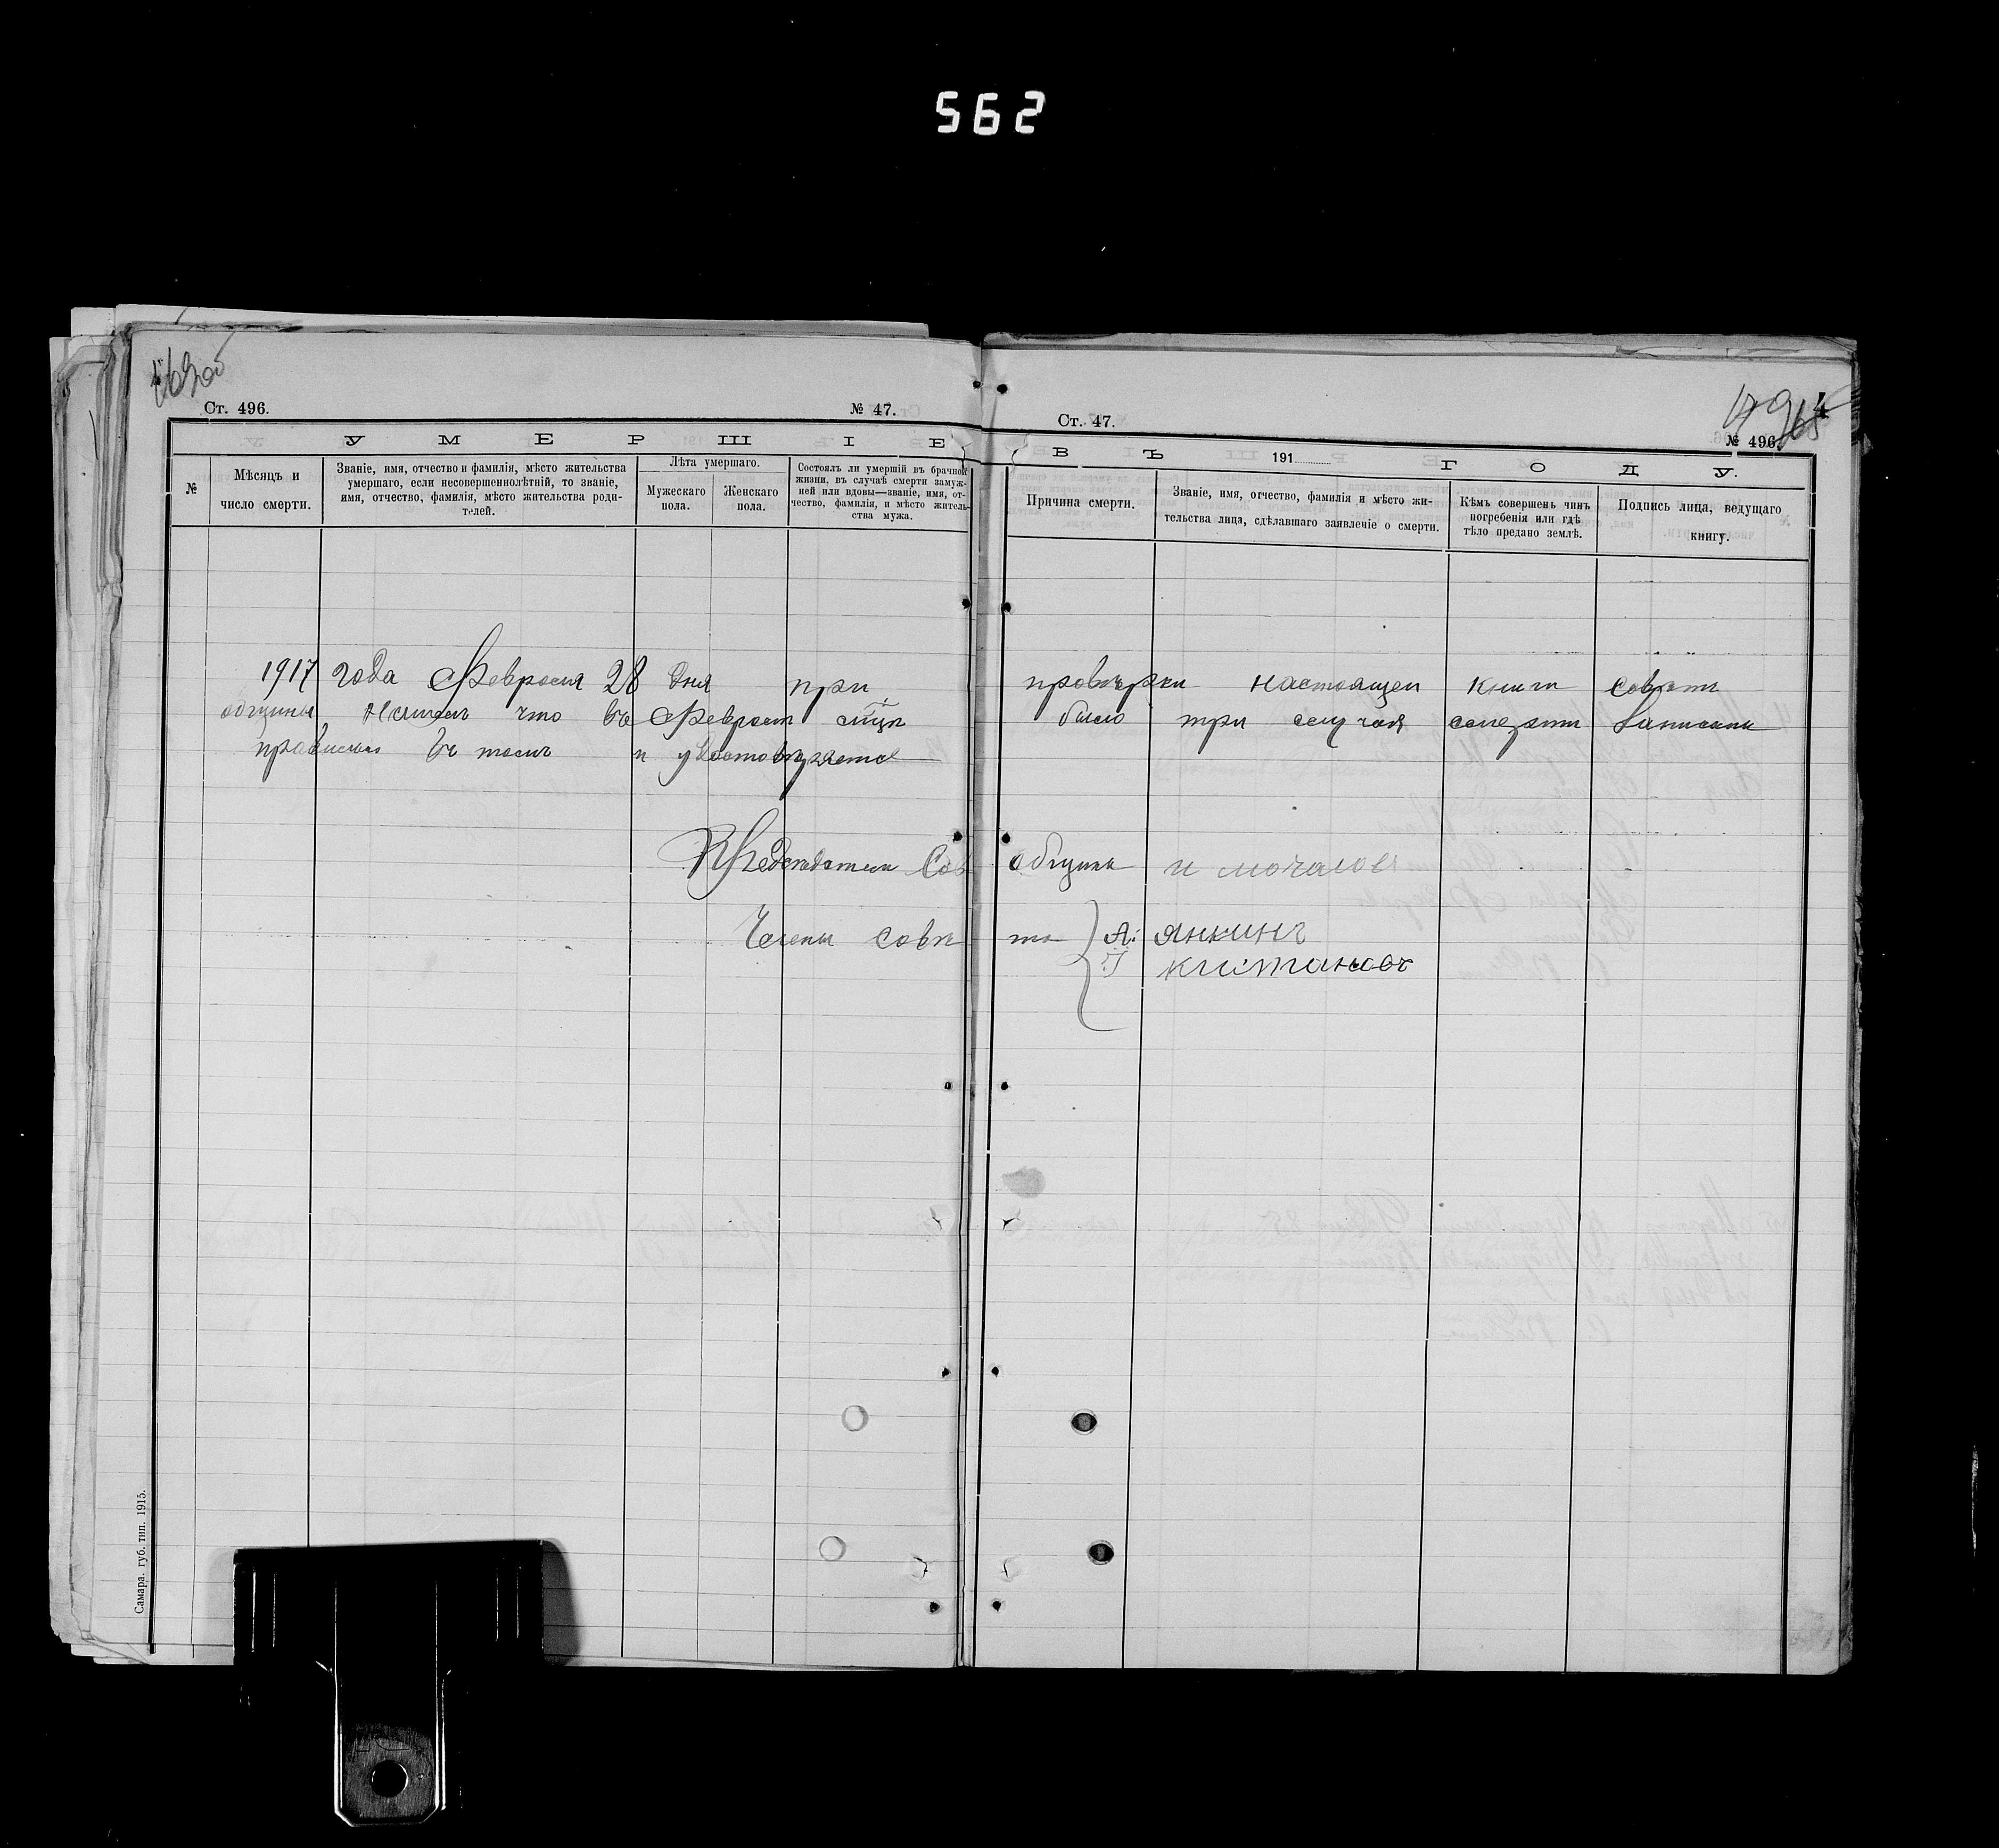 562
Ст. 496.
№ 47.
Ст. 47.
№ 496.
УМЕРШІЕ
ВЪ 191 ГОДУ.
№
Мѣсяцъ и число смерти.
Званіе, имя, отчество и фамилія, мѣсто жительства
умершаго, если несовершеннолѣтній, то званіе,
имя, отчество, фамилія, мѣсто жительства роди-
телей.
Лѣта умершаго.
Мужескаго пола.
Женскаго пола.
Состоялъ ли умершій въ брачной
жизни, въ случаѣ смерти замуж-
ней или вдовы—званіе, имя, от-
чество, фамилія, и мѣсто житель-
ства мужа.
Причина смерти.
Званіе, имя, отчество, фамилія и мѣсто жи-
тельства лица, сдѣлавшаго заявленіе о смерти.
Кѣмъ совершенъ чинъ
погребенія или гдѣ
тѣло предано землѣ.
Подпись лица, ведущаго
книгу.
1917 года Февраля 28 дня при провѣрки настоящей книги совѣтъ
общины что въ Февралѣ м-цѣ было три случая смерти записаны
правильно въ томъ и удостовѣряется
Предсѣдатель Сов общины И мочалов
Члены совѣта А. Янкинъ
Г Кистановъ
Самара. губ. тип. 1915.